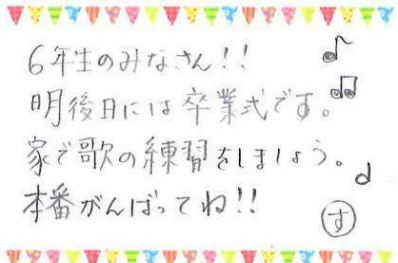 6年生のみなさん!!
明後日には卒業式です。
家で歌の練習をしましょう。
本番がんばってね!!
す